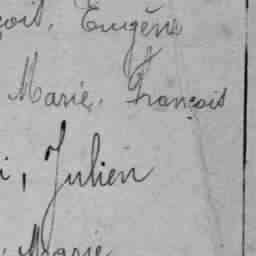 çois, Eugène
Marie, François
i, Julien
, Marie